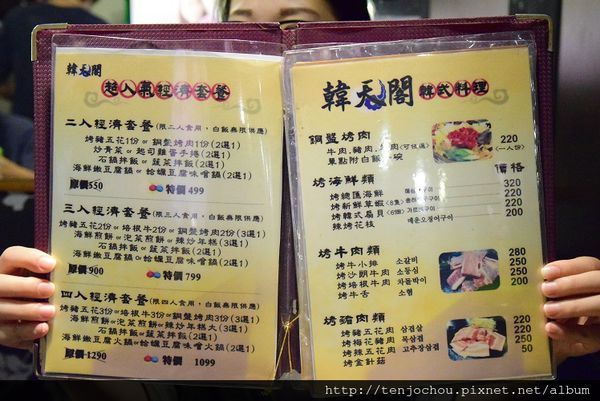 韓天閣
超人氣經濟套餐
二人經濟套餐(限二人食用，白飯無限供應)
烤豬五花1份or銅盤烤肉1份(2選1)
炒青菜or起司雞醬手捲(2選1)
石鍋拌飯or蔬菜拌飯(2選1)
海鮮嫩豆腐鍋or蛤蠣豆腐味噌鍋(2選1)
原價550 特價 499
三人經濟套餐(限三人食用，白飯無限供應)
烤豬五花2份or培根牛2份or銅盤烤肉2份(3選1)
海鮮煎餅or泡菜煎餅or辣炒年糕(3選1)
石鍋拌飯or蔬菜拌飯(2選1)
海鮮嫩豆腐鍋or蛤蠣豆腐味噌鍋(2選1)
原價900 特價 799
四人經濟套餐(限四人食用，白飯無限供應)
烤豬五花3份or培根牛3份or銅盤烤肉3份(3選1)
海鮮煎餅or泡菜煎餅or辣炒年糕大(3選1)
石鍋拌飯or蔬菜拌飯(2選1)
海鮮嫩豆腐火鍋or蛤蠣豆腐味噌火鍋(2選1)
原價1290 特價 1099
韓天閣 韓式料理
銅盤烤肉
牛肉,豬肉, 肉(可任選) 220
單點附白飯 碗 (一人份)
烤海鮮類 價格
烤總匯海鮮 320
烤新鮮草蝦 200
烤韓式扇貝 220
辣烤花枝 매운오징어구이 200
烤牛肉類
烤牛小排 소갈비 280
烤沙朗牛肉 소등심 250
烤培根牛肉 차돌박이 250
烤牛舌 소혀 250
烤豬肉類
烤豬五花肉 삼겹살 220
烤梅花豬肉 목삼겹 220
烤辣五花肉 고추장삼겹 250
烤金針菇 50
http://tenjochou.pixnet.net/album